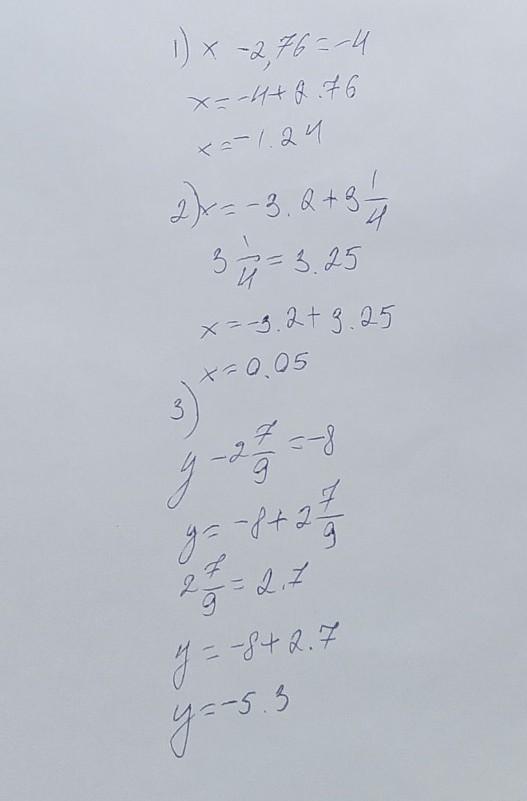 1) x -2,76=-4
x=-4+2.76
x=-1.24
2) x=-3.2+3 1/4
3 1/4=3.25
x=-3.2+3.25
x=0.05
3)
y-2 7/9=-8
y=-8+2 7/9
2 7/9=2.7
y=-8+2.7
y=-5.3